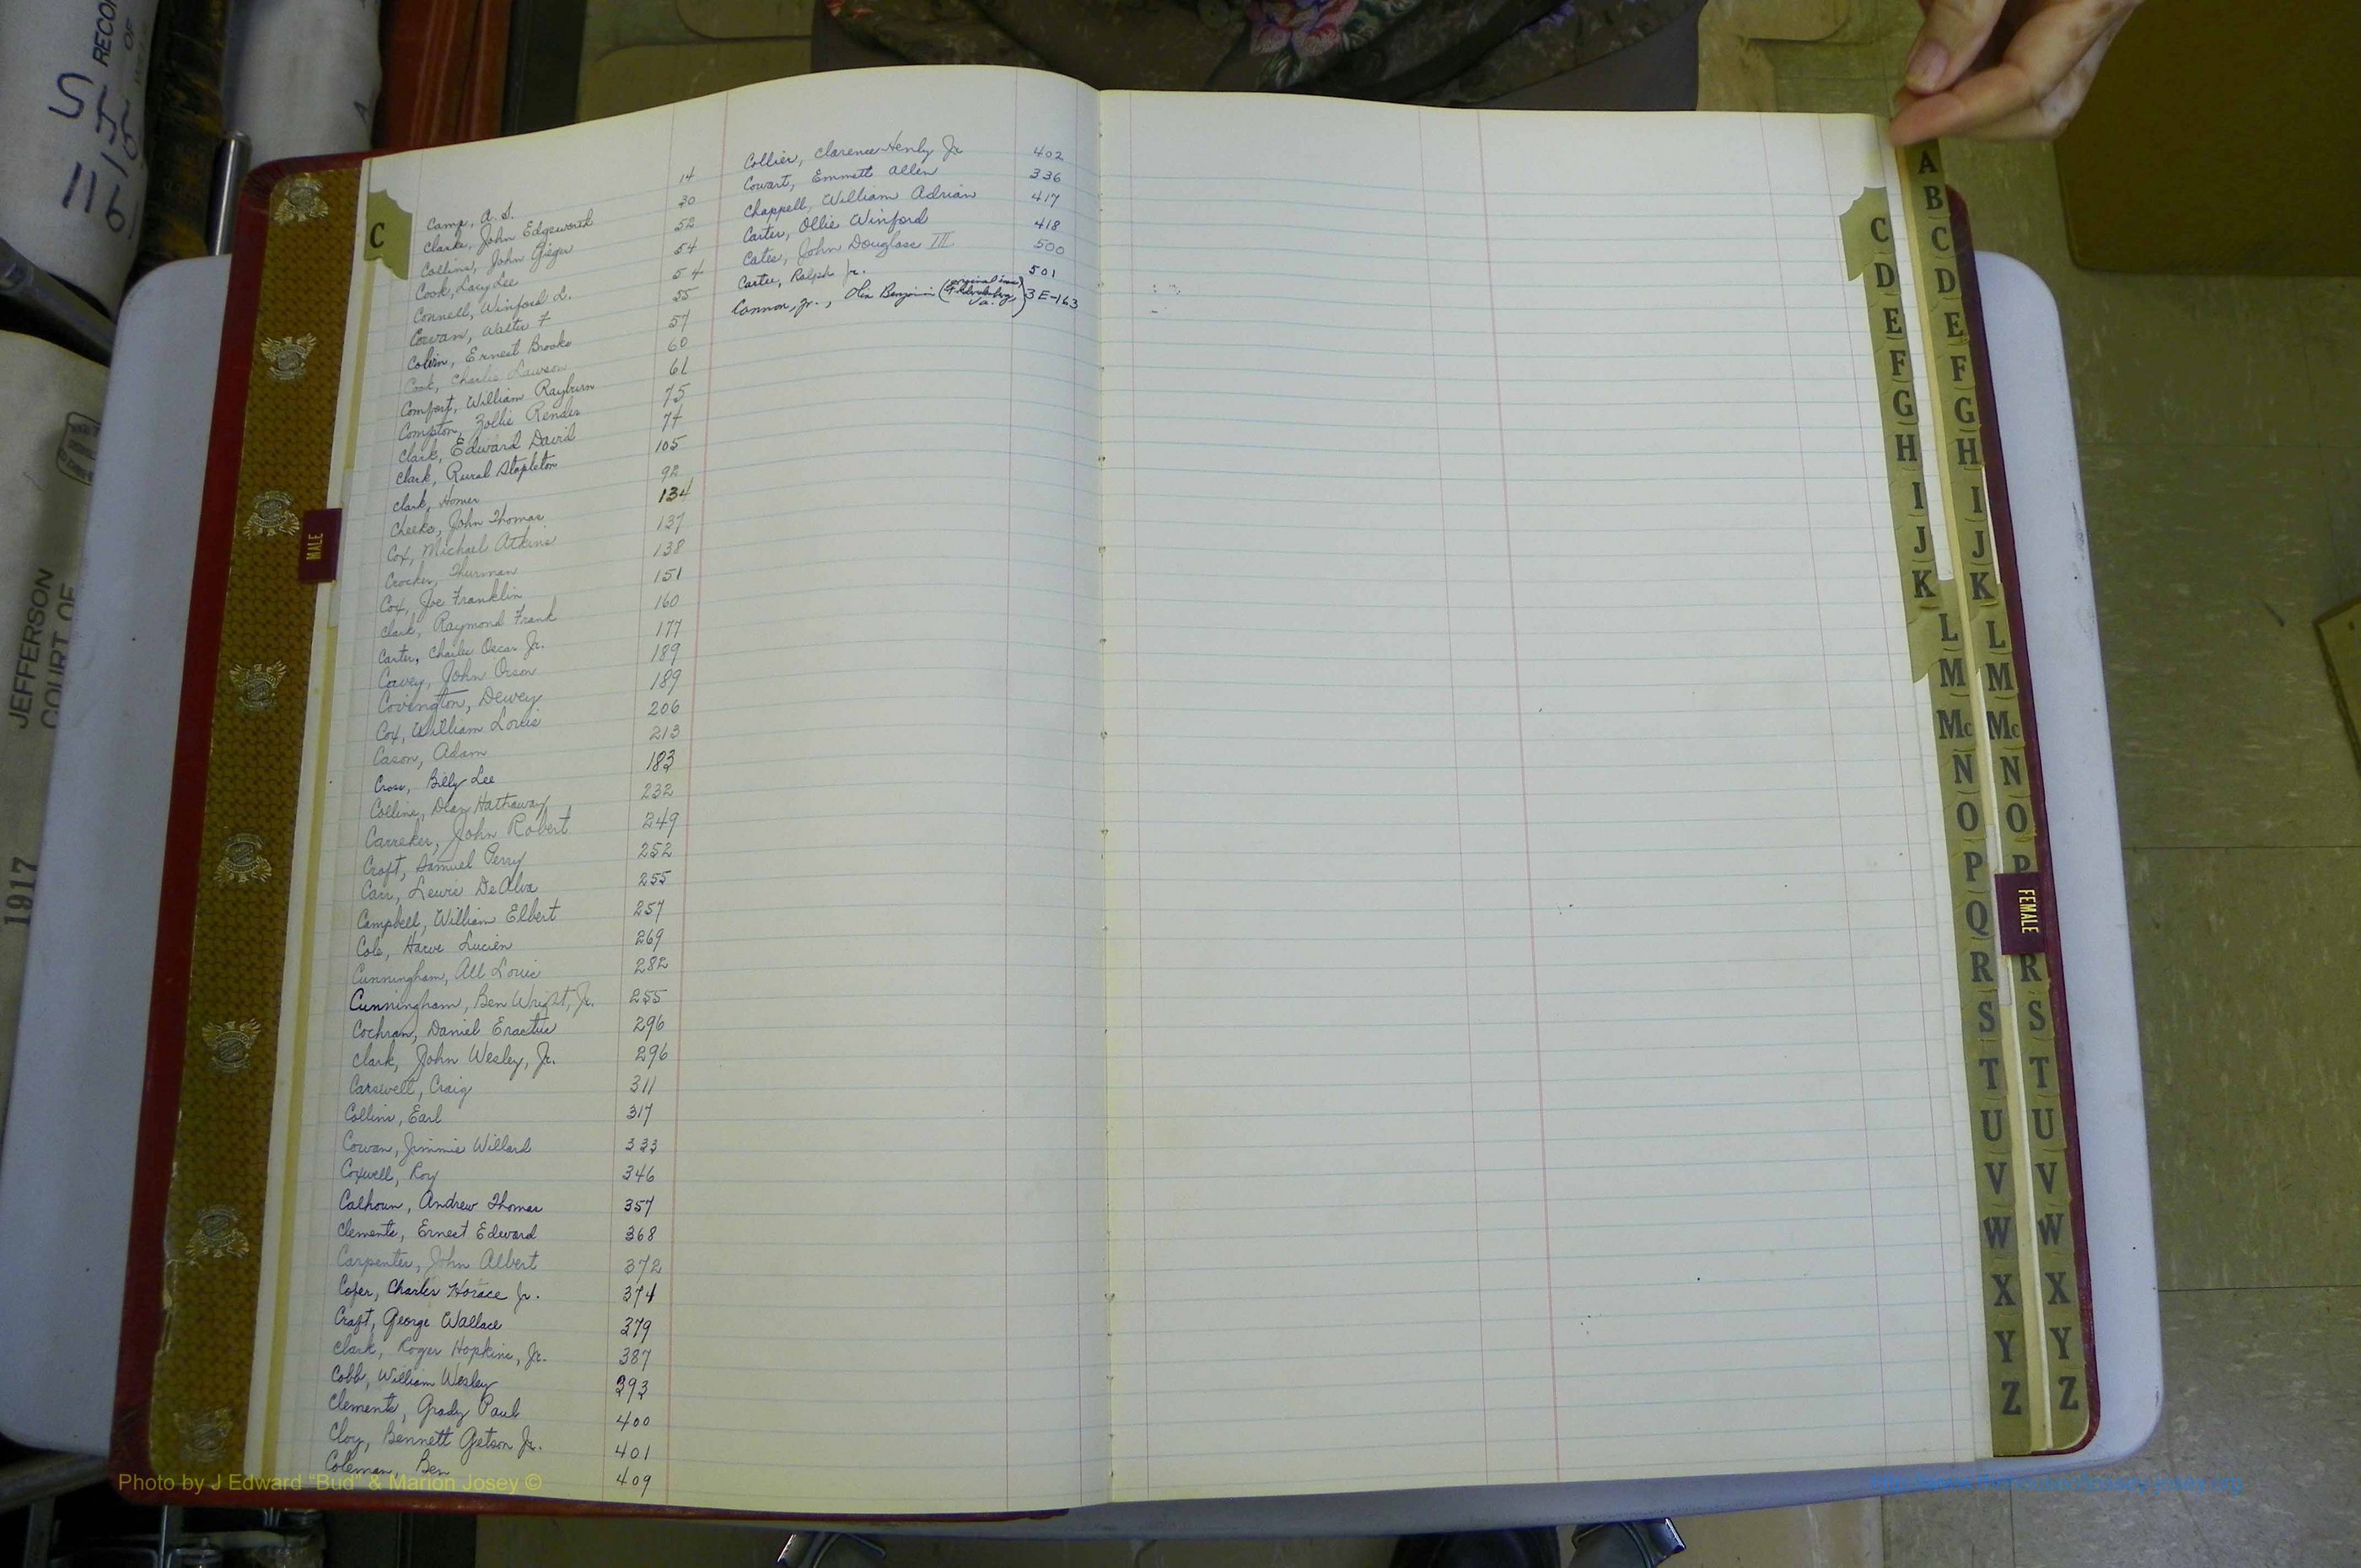 C
Camp, A. S. 14
Clark, John Edgeworth 30
Collins, John Gieger 52
Cook, Lacy Lee 54
Connell, Winford L. 54
Cowan, Walter F 55
Colvin, Ernest Brooks 57
Cook, Charlie Lawson 60
Comfort, William Rayburn 61
Compton, Zollie Render 75
Clark, Edward David 74
Clark, Rural Stapleton 105
Clark, Homer 92
Cheeks, John Thomas 134
Cox, Michael Atkins 137
Crocker, Thurman 138
Cox, Joe Franklin 151
Clark, Raymond Frank 160
Carter, Charlie Oscar Jr. 177
Cavey, John Orson 189
Covington, Dewey 189
Cox, William Louis 206
Cason, Adam 213
Cross, Billy Lee 183
Collins, Dean Hathaway 232
Carreker, John Robert 249
Croft, Samuel Perry 252
Carr, Lewis DeAlva 255
Campbell, William Elbert 257
Cole, Harve Lucien 269
Cunningham, All Louis 282
Cunningham, Ben Wright, Jr. 255
Cochran, Daniel Erastus 296
Clark, John Wesley, Jr. 296
Carswell, Craig 311
Collins, Earl 317
Cowan, Jimmie Willard 333
Coxwell, Roy 346
Calhoun, Andrew Thomas 357
Clements, Ernest Edward 368
Carpenter, John Albert 372
Cofer, Charles Horace Jr. 374
Craft, George Wallace 379
Clark, Roger Hopkins, Jr. 387
Cobb, William Wesley 393
Clements, Grady Paul 400
Cloy, Bennett Getson Jr. 401
Coleman, Ben 409
Collier, Clarence Henly Jr 402
Cowart, Emmett Allen 336
Chappell, William Adrian 417
Carter, Ollie Winford 418
Cates, John Douglass III 500
Carter, Ralph Jr. 501
Cannon, Jr., Olin Benjamin (original in Va.) 3E-163
MALE
FEMALE
A
B
C C
D D
E E
F F
G G
H H
I I
J J
K K
L L
M M
Mc Mc
N N
O O
P P
Q
R R
S S
T T
U U
V V
W W
X X
Y Y
Z Z
RECO
OF
JEFFERSON
COURT OF
1917
Photo by J Edward "Bud" & Marion Josey ©